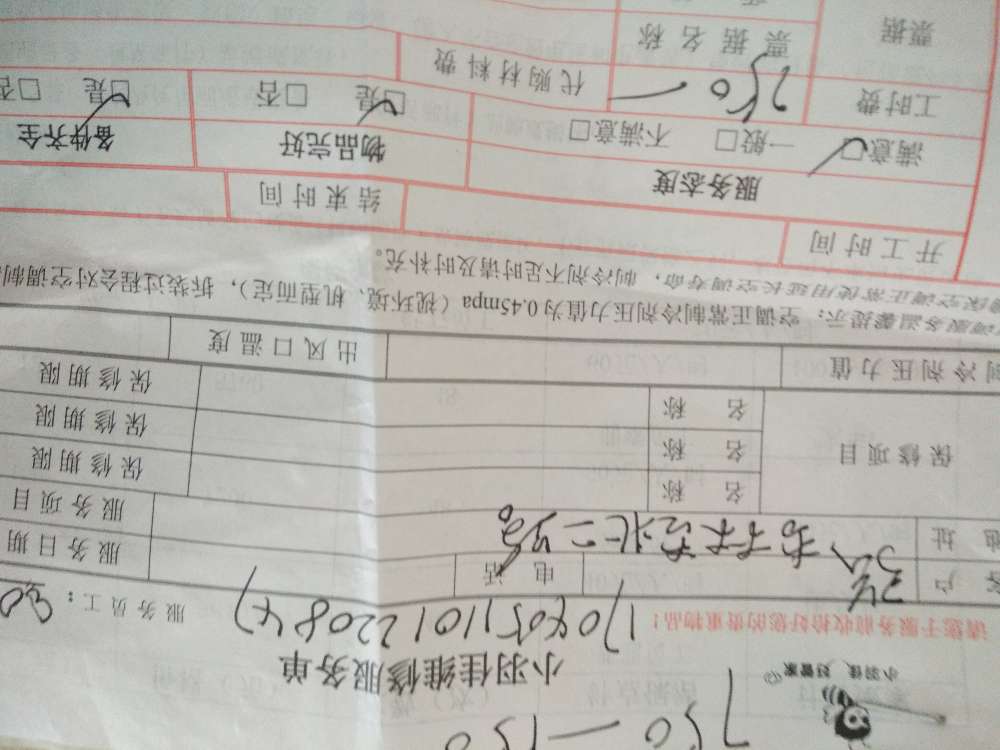 750-150
小羽佳 好管家
小羽佳维修服务单
请您于服务前收拾好您的贵重物品!
服务员工:
客 户
电 话
服务日期
地 址
服务项目
保修项目
名 称
保修期限
名 称
保修期限
名 称
保修期限
制冷剂压力值
出风口温度
调服务温馨提示: 空调正常制冷剂压力值为0.45mpa(视环境、机型而定), 拆装过程会对空调制
保空调正常使用延长空调寿命, 制冷剂不足时请及时补充。
开工时间
结束时间
服务态度
物品完好
备件齐全
满意□ 一般□ 不满意□
□是 □否
□是 □否
工时费
750 —
代购材料费
票据
票据名称